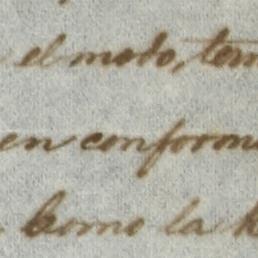 el modo, tem
en conform
como la h